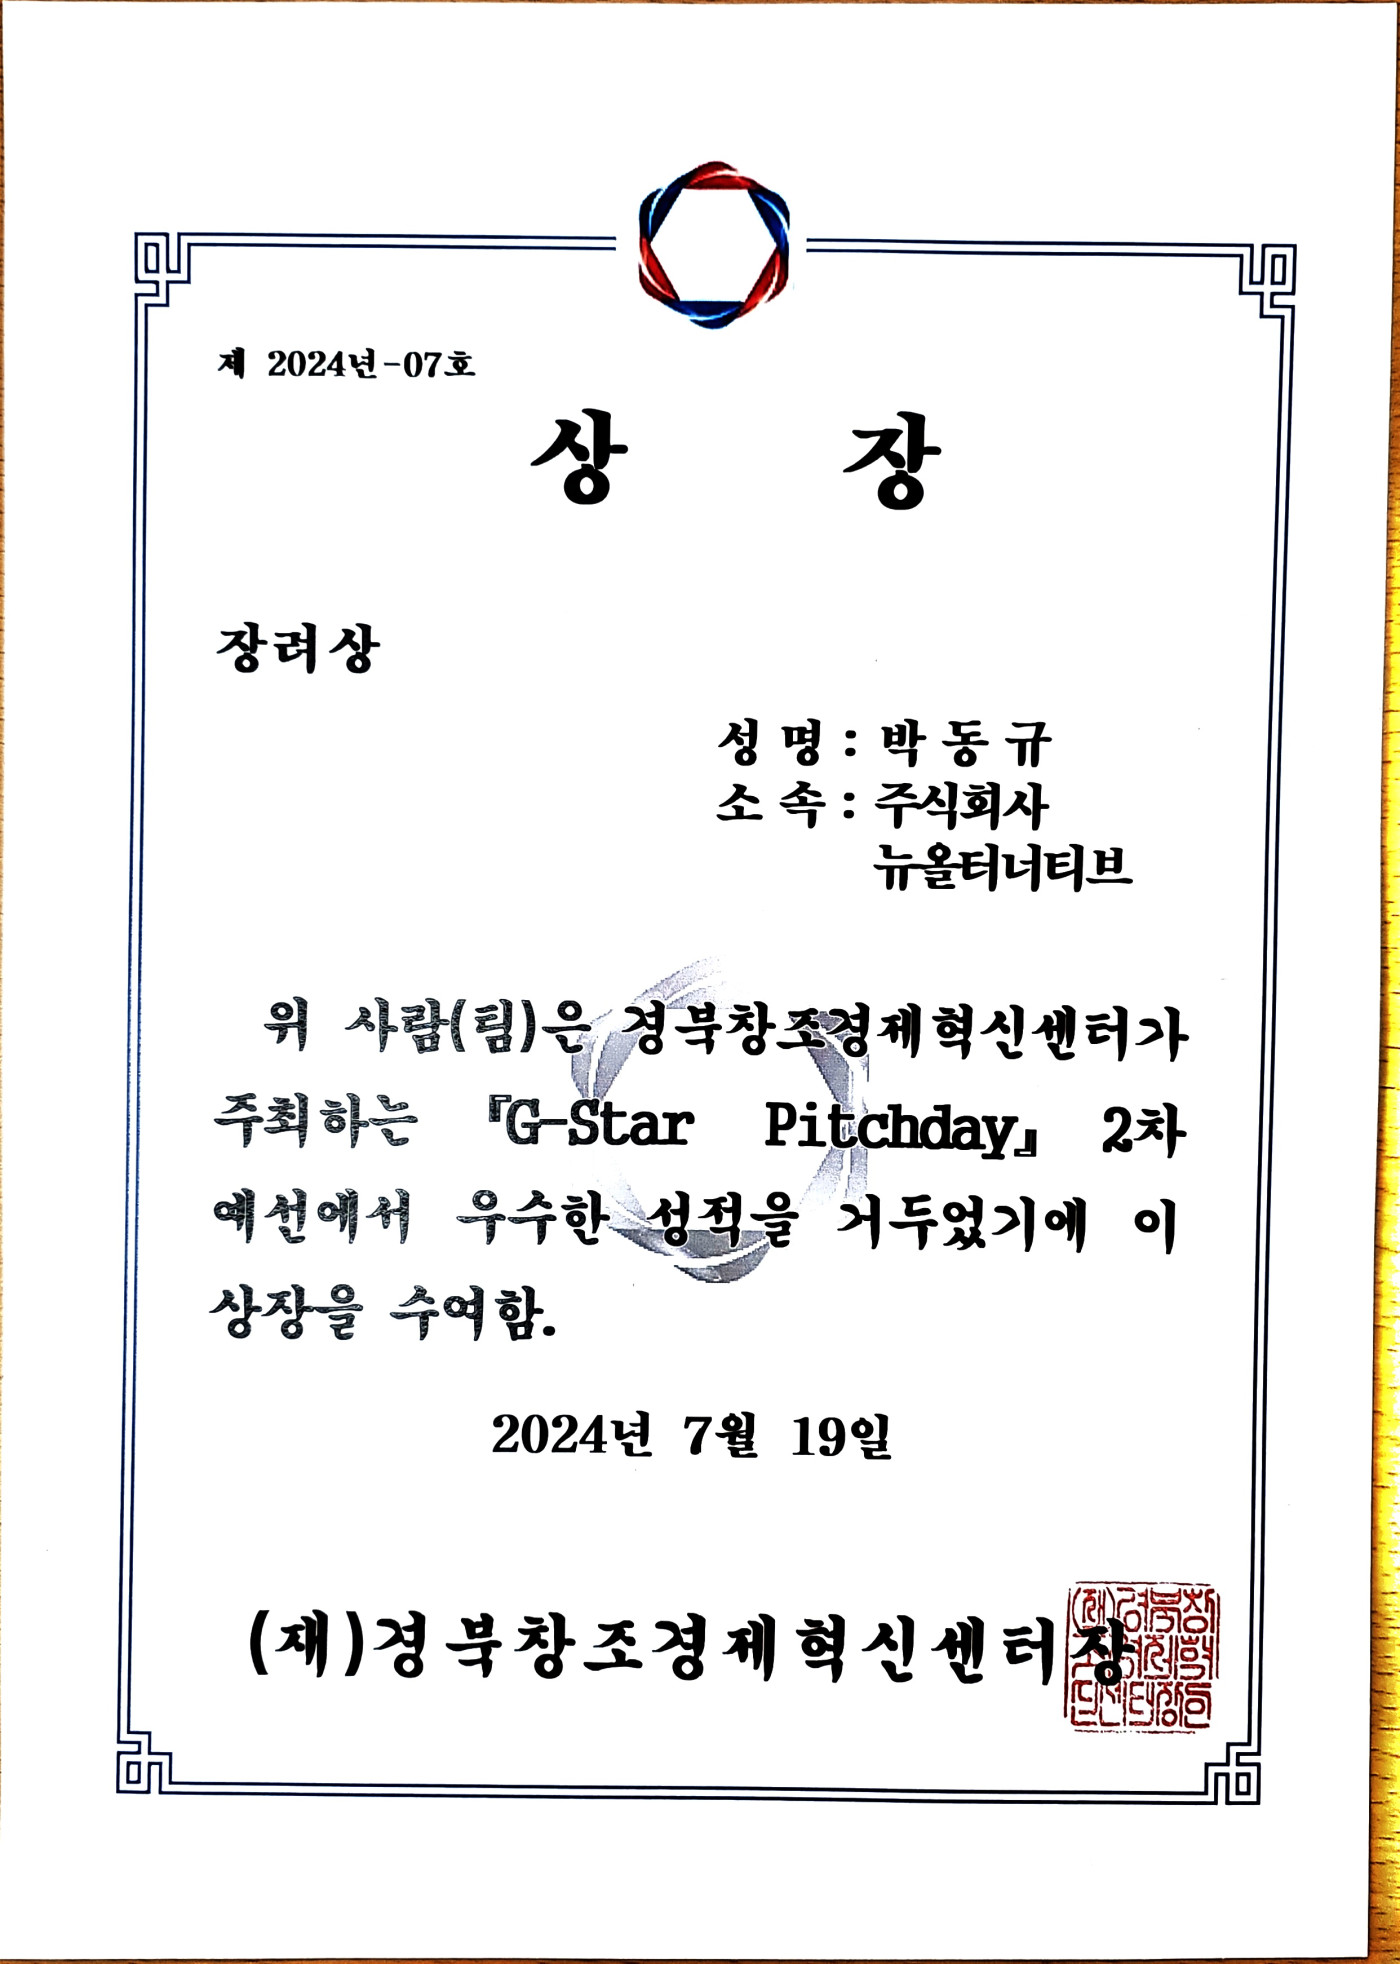 제 2024년-07호
상 장
장려상
성 명 : 박 동 규
소 속 : 주식회사
뉴올터너티브
위 사람(팀)은 경북창조경제혁신센터가
주최하는 『G-Star Pitchday』 2차
예선에서 우수한 성적을 거두었기에 이
상장을 수여함.
2024년 7월 19일
(재)경북창조경제혁신센터장